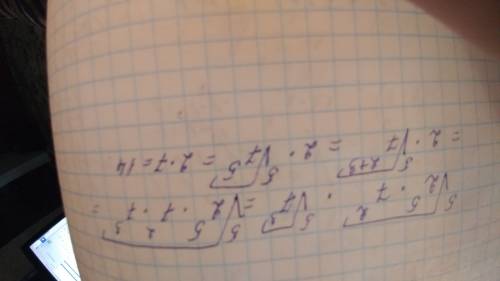 ⁵√(2⁵ · 7²) · ⁵√(7³) = ⁵√(2⁵ · 7² · 7³) =
= 2 · ⁵√(7²⁺³) = 2 · ⁵√(7⁵) = 2 · 7 = 14